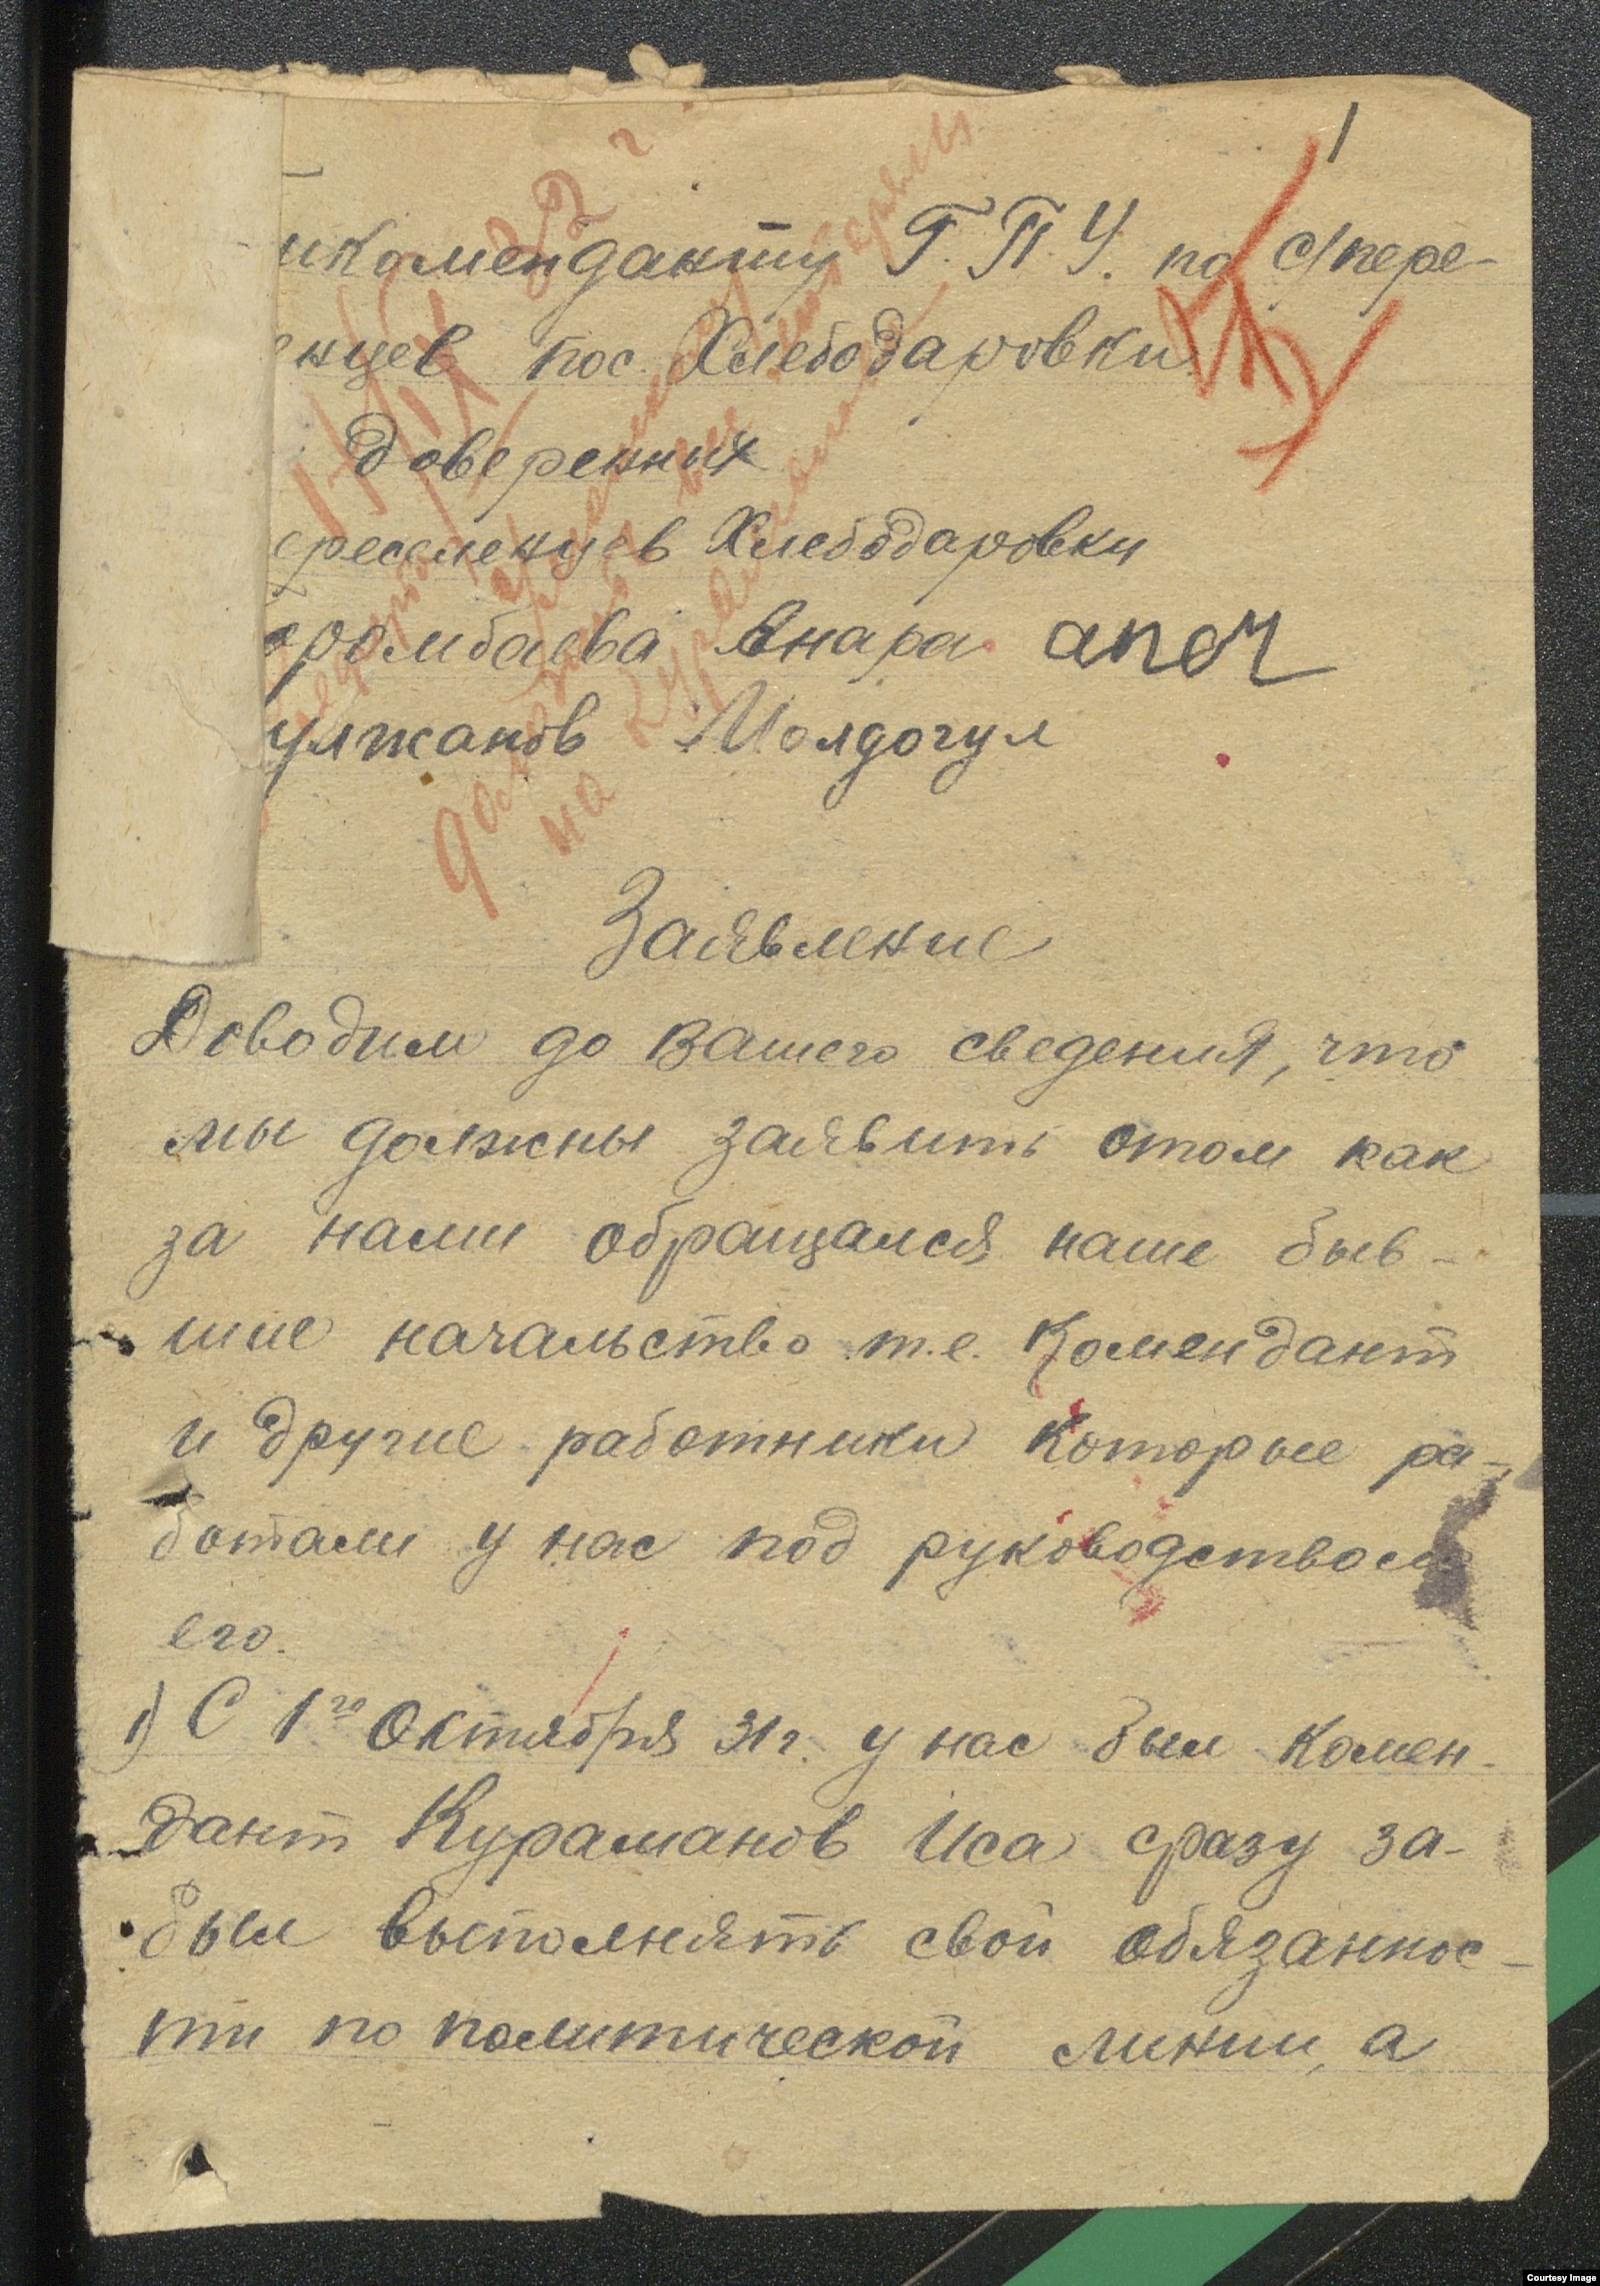 1
икоменданту Г.П.У. по с/пере-
енцев пос. Хлебодаровки
доверенных
ереселенцев Хлебодаровки
оромбаева Янара
улжанов Молдогул
Заявление
Доводим до Вашего сведения, что
мы должны заявить отом как
за нами обращался наше быв-
шие начальство т.е. Комендант
и другие работники которые ра-
ботали у нас под руководством
его.
1) С 1го Октября 31г. у нас был комен-
дант Кураманов Иса сразу за-
был выполнять свои обязаннос-
ти по политической линии, а
Courtesy Image